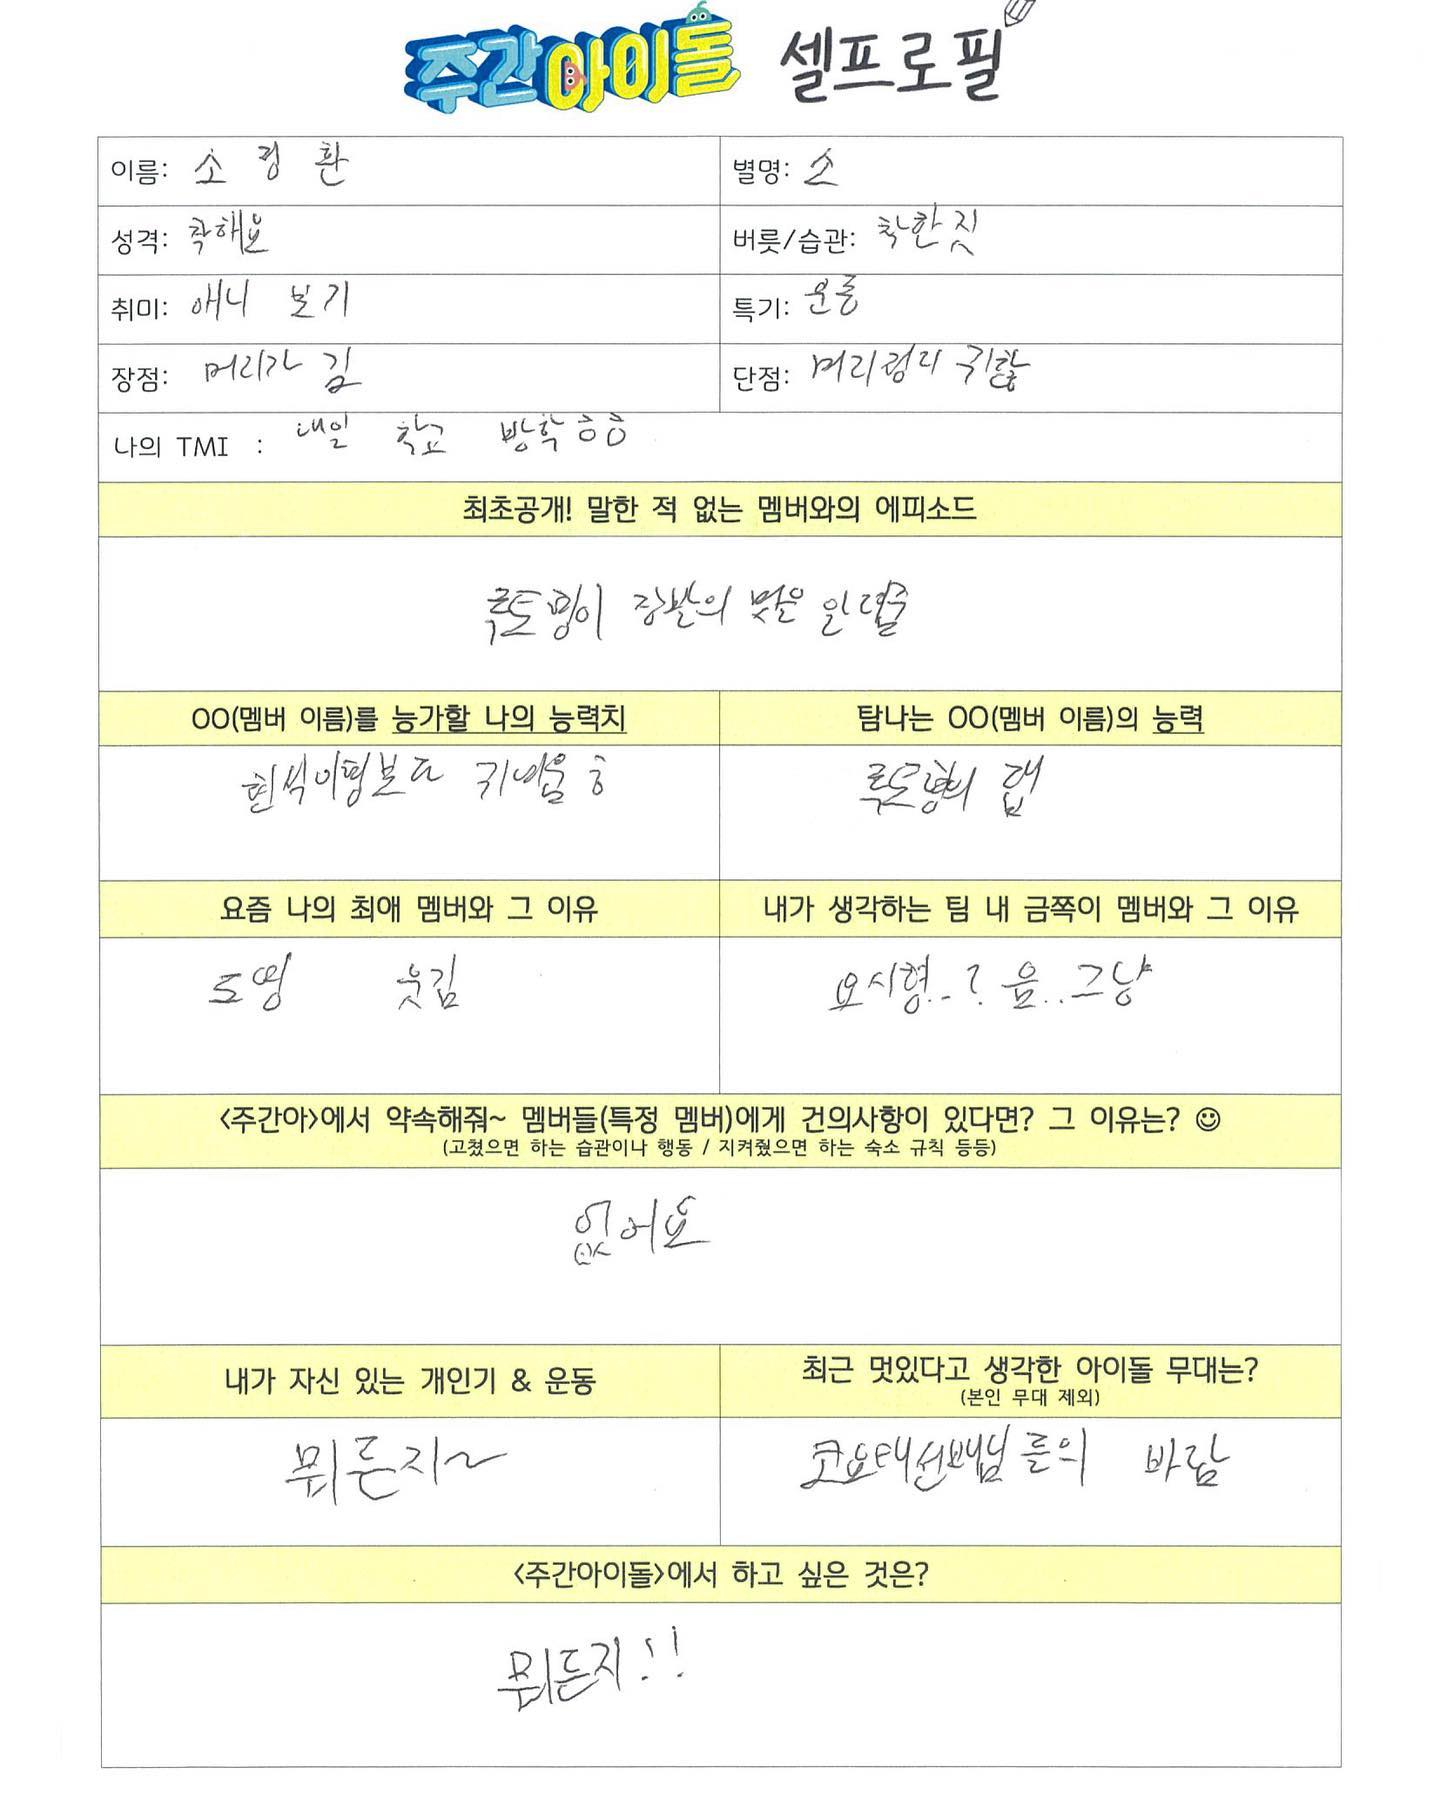 주간아이돌 셀프로필
이름: 소정환 별명: 소
성격: 착해요 버릇/습관: 착한 짓
취미: 애니 보기 특기: 운동
장점: 머리가 김 단점: 머리 귀찮
나의 TMI : 내일 학교 방학 ㅎㅎ
최초공개! 말한 적 없는 멤버와의 에피소드
OO(멤버 이름)를 능가할 나의 능력치 탐나는 OO(멤버 이름)의 능력
현석이형보다 귀여움 ㅎ 루토형의 랩
요즘 나의 최애 멤버와 그 이유 내가 생각하는 팀 내 금쪽이 멤버와 그 이유
도영 웃김 요시형..? 음..그냥
<주간아>에서 약속해줘~ 멤버들(특정 멤버)에게 건의사항이 있다면? 그 이유는? ☺
(고쳤으면 하는 습관이나 행동 / 지켜줬으면 하는 숙소 규칙 등등)
없어요
내가 자신 있는 개인기 & 운동 최근 멋있다고 생각한 아이돌 무대는?
(본인 무대 제외)
뭐든지~ 코요태선배님들의 바람
<주간아이돌>에서 하고 싶은 것은?
뭐든지!!